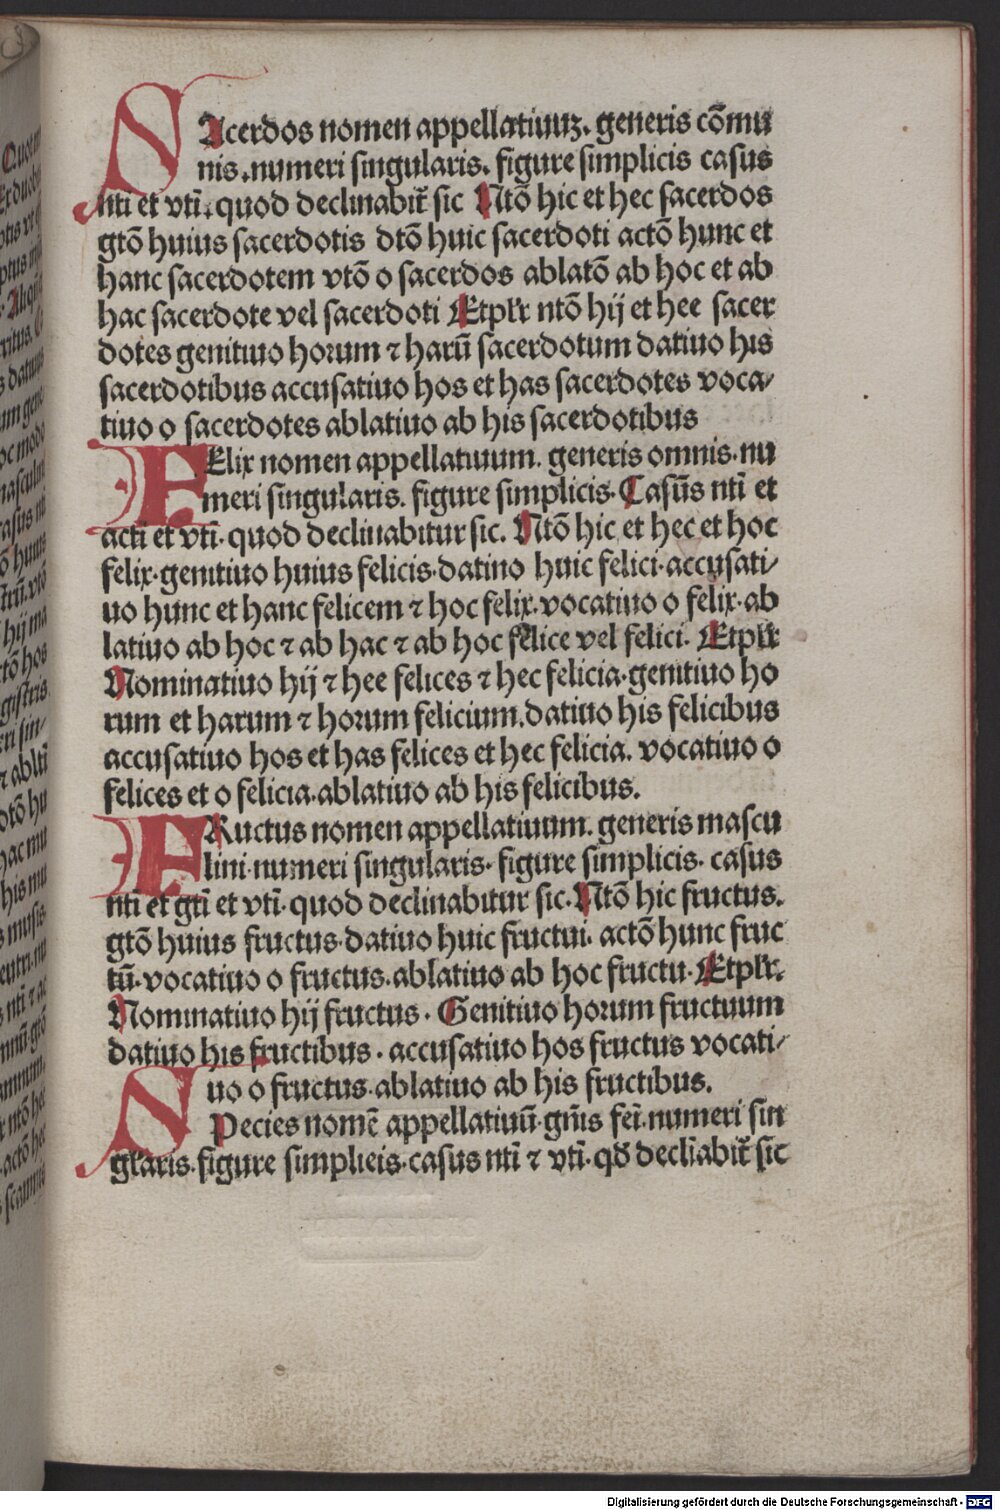 SAcerdos nomen appellatiuuꝫ. generis cōmu
nis. numeri singularis. figure simplicis casus
nti et vtī. quod declinabit̄ sic Ntō hic et hec sacerdos
gtō huius sacerdotis dtō huic sacerdoti actō hunc et
hanc sacerdotem vtō o sacerdos ablatō ab hoc et ab
hac sacerdote vel sacerdoti Et pl̄r ntō hij et hee sacer
dotes genitiuo horum ⁊ harū sacerdotum datiuo his
sacerdotibus accusatiuo hos et has sacerdotes voca/
tiuo o sacerdotes ablatiuo ab his sacerdotibus
FElix nomen appellatiuum. generis omnis. nu
meri singularis. figure simplicis. Casūs ntī et
acti et vtī. quod declinabitur sic. Ntō hic et hec et hoc
felix. genitiuo huius felicis. datino huic felici. accusati/
uo hunc et hanc felicem ⁊ hoc felix. vocatiuo o felix. ab
latiuo ab hoc ⁊ ab hac ⁊ ab hoc felice vel felici. Et pl̄r
Nominatiuo hij ⁊ hee felices ⁊ hec felicia. genitiuo ho
rum et harum ⁊ horum felicium. datiuo his felicibus
accusatiuo hos et has felices et hec felicia. vocatiuo o
felices et o felicia. ablatiuo ab his felicibus.
FRuctus nomen appellatiuum. generis mascu
lini. numeri singularis. figure simplicis. casus
ntī et gtī et vtī. quod declinabitur sic. Ntō hic fructus.
gtō huius fructus. datiuo huic fructui. actō hunc fruc
tū. vocatiuo o fructus. ablatiuo ab hoc fructu. Et pl̄r.
Nominatiuo hij fructus. Genitiuo horum fructuum
datiuo his fructibus. accusatiuo hos fructus vocati/
uo o fructus. ablatiuo ab his fructibus.
SPecies nomē appellatiuū. gn̄is fei̅. numeri sin
gl̄aris. figure simplicis. casus ntī ⁊ vtī. qđ decl̄iabit̄ sic
Digitalisierung gefördert durch die Deutsche Forschungsgemeinschaft - DFG